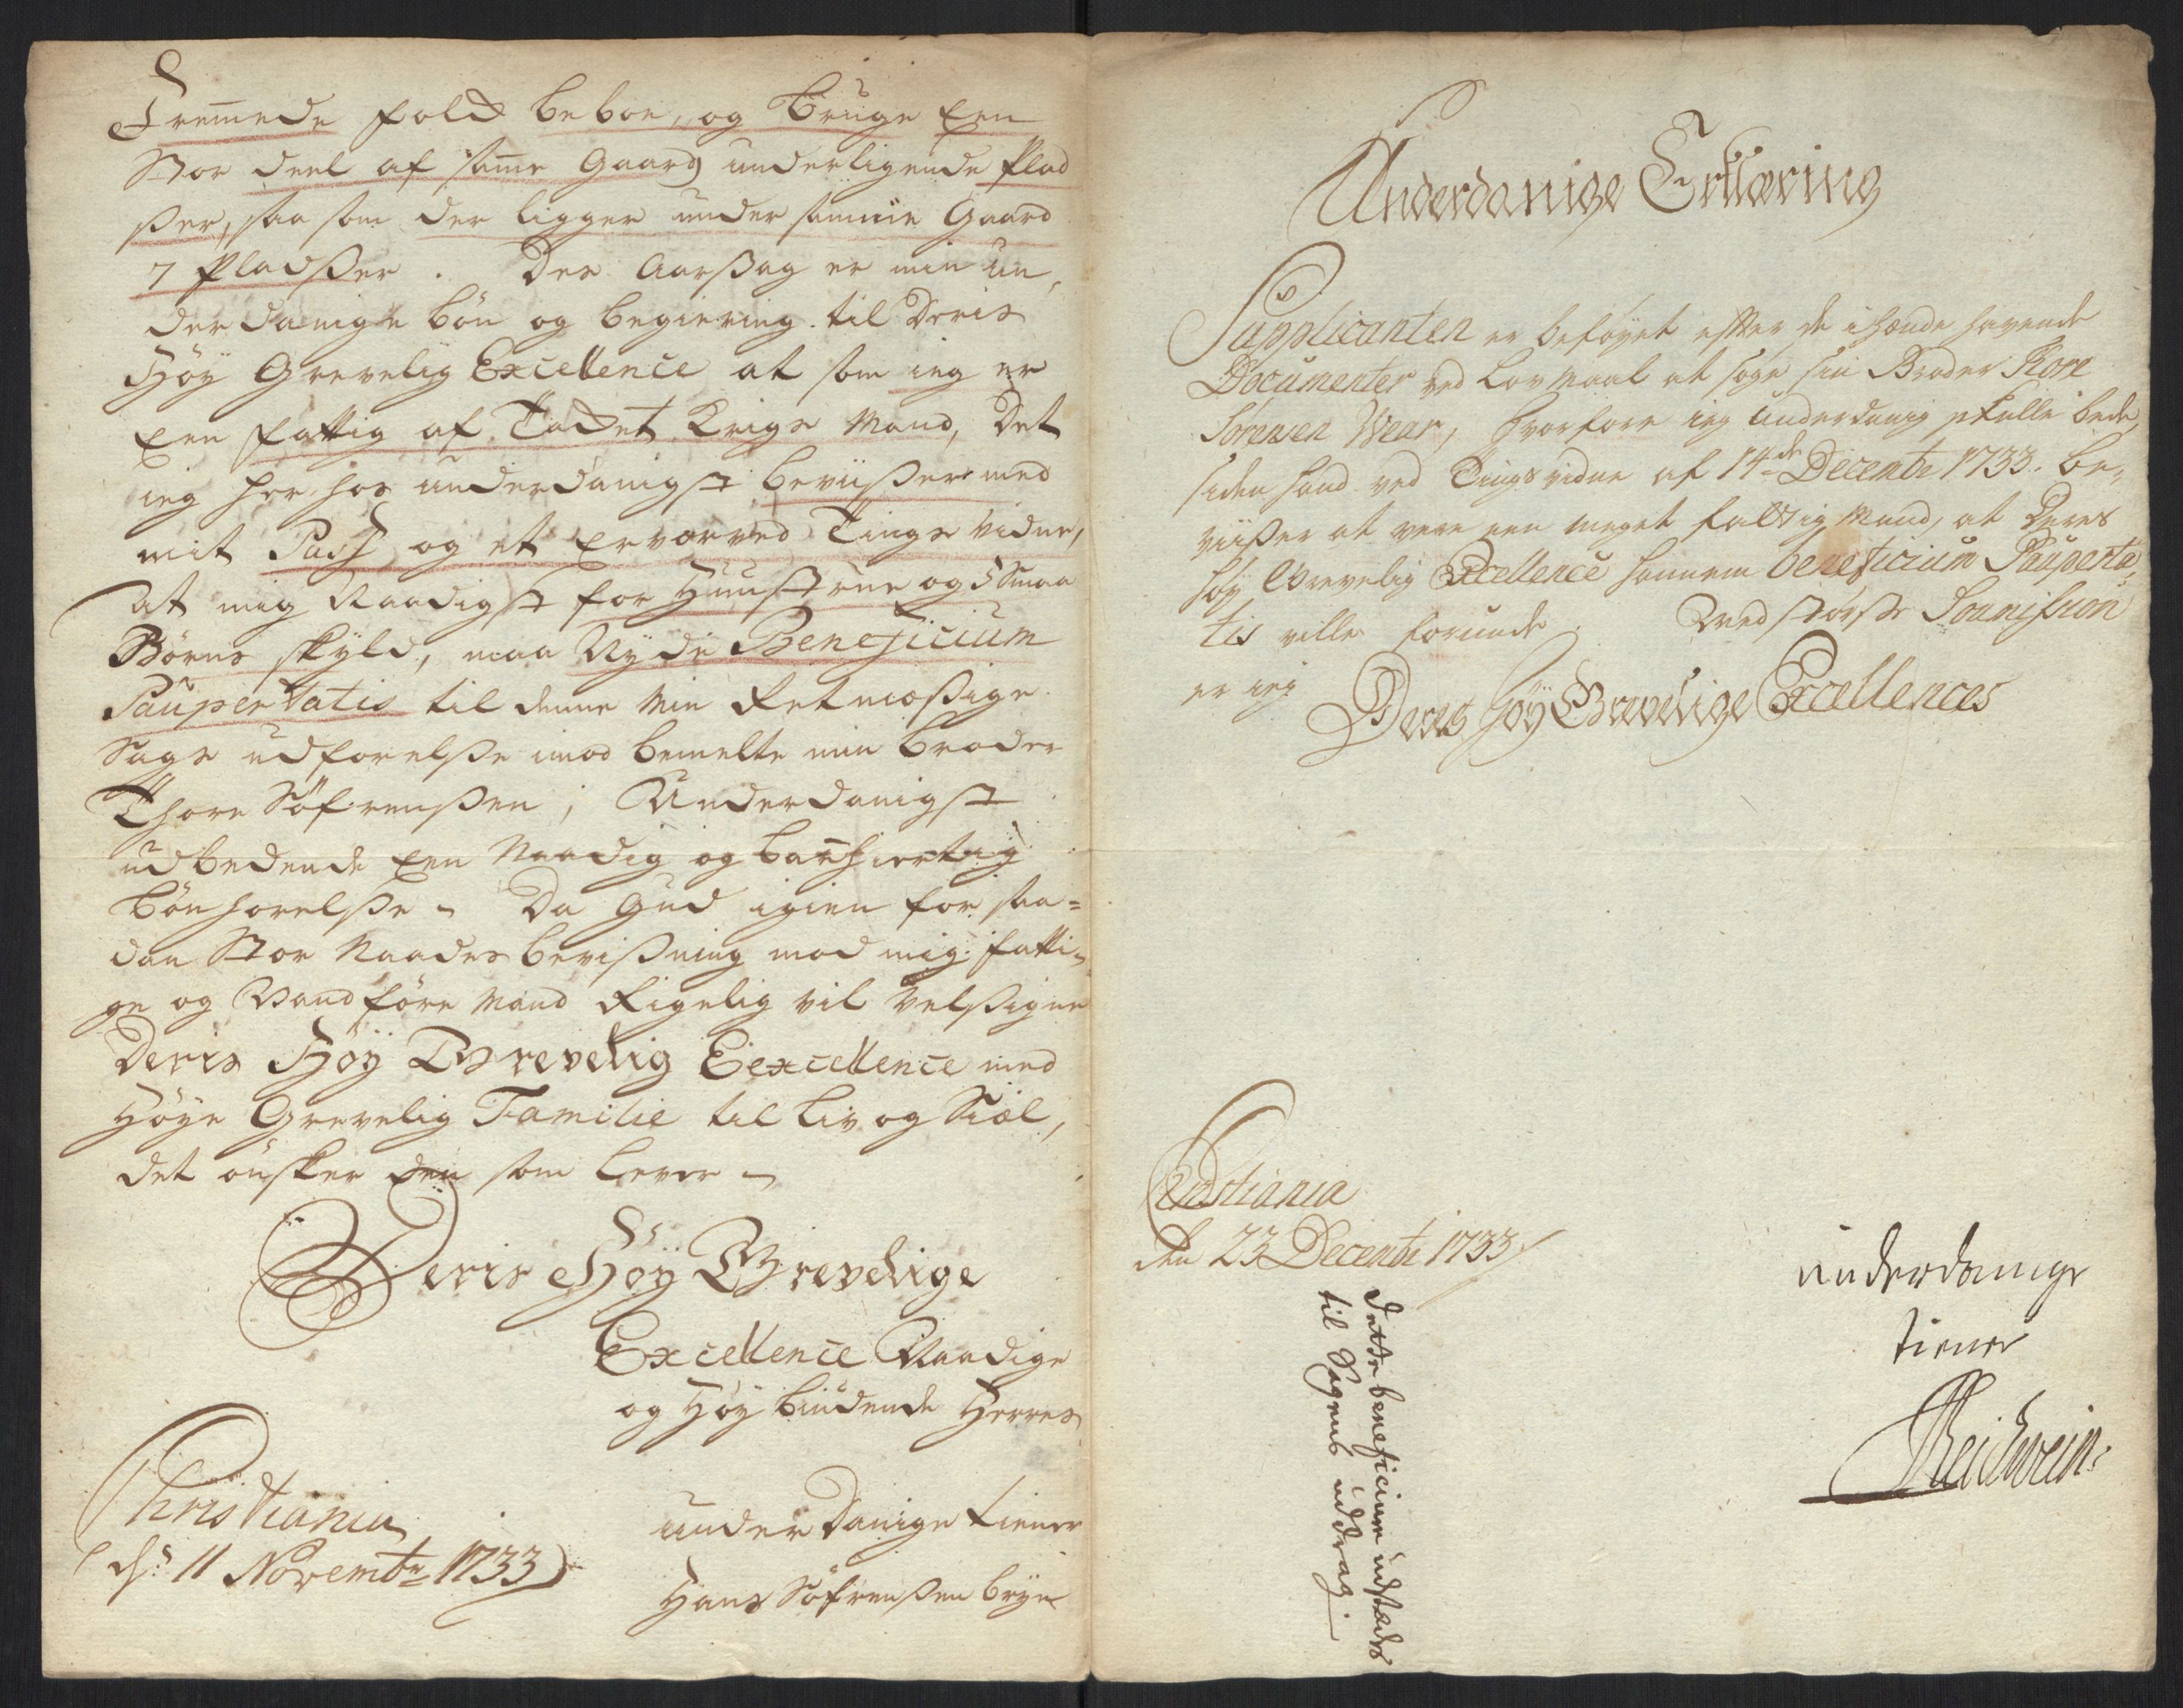 Fremmede folck beboe, og bruge Een
Stor deel af samme Gaard underligende Plad
ßer, saa som der ligger under samme Gaard
7 Pladßer. Des Aarßag er min un,
derdanige bön og begiering til Deris
Höy Grevelig Excellence at som ieg er
Een fattig af Tacket Krigs Mand, Det
ieg her hos underdanigst beviißer med
mit Pass og et Erværved Tings vidne,
At mig Naadigst for Huustrue og Smaa
Börns skyld, maa Nyde Beneficium
Paupertatis til denne Min Retmæßige
Sags udförelße imod bemelte min broder
Thore Söfrenßen; Underdanigst
udbedende Een Naadig og barmhiertig
bönhörelße - Da Gud igien for saa=
dan Stor Naades bevißning mod mig fatti-
ge og Vanföre Mand Rigelig vil velßigne
Deris Höy Grevelig Eexcellence med
Höye Grevelig Familie til Liv og Siæl,
det önsker den som lever -
Deris Höy Grevelige
Excellence Naadige
og Höy biudende Herres
Christiania
ds: 11 Novembr 1733
underdanige tiener
Hans Söfrenßen bryn
Underdanige Erklæring
Supplicanten er beföyet efter de i hænde havende
Documenter ved Lov Maal at söge sin Broder Tore
Sörensen Wear, hvorfore ieg underdanig skulle bede,
siden hand ved Tings vidne af 14de Decembr 1733. be,
viißer at vere een meget fattig Mand, at Deres
höy Grevelig Excellence hannem beneficium Pauperta,
tis ville forunde. Med störste Soumission
er ieg
Deres Höy Grevelige Excellences
Christiania
den 23 Decembr 1733
underdanige
tiener
Reichwein
Dette beneficium udstædes
til Sagens uddrag